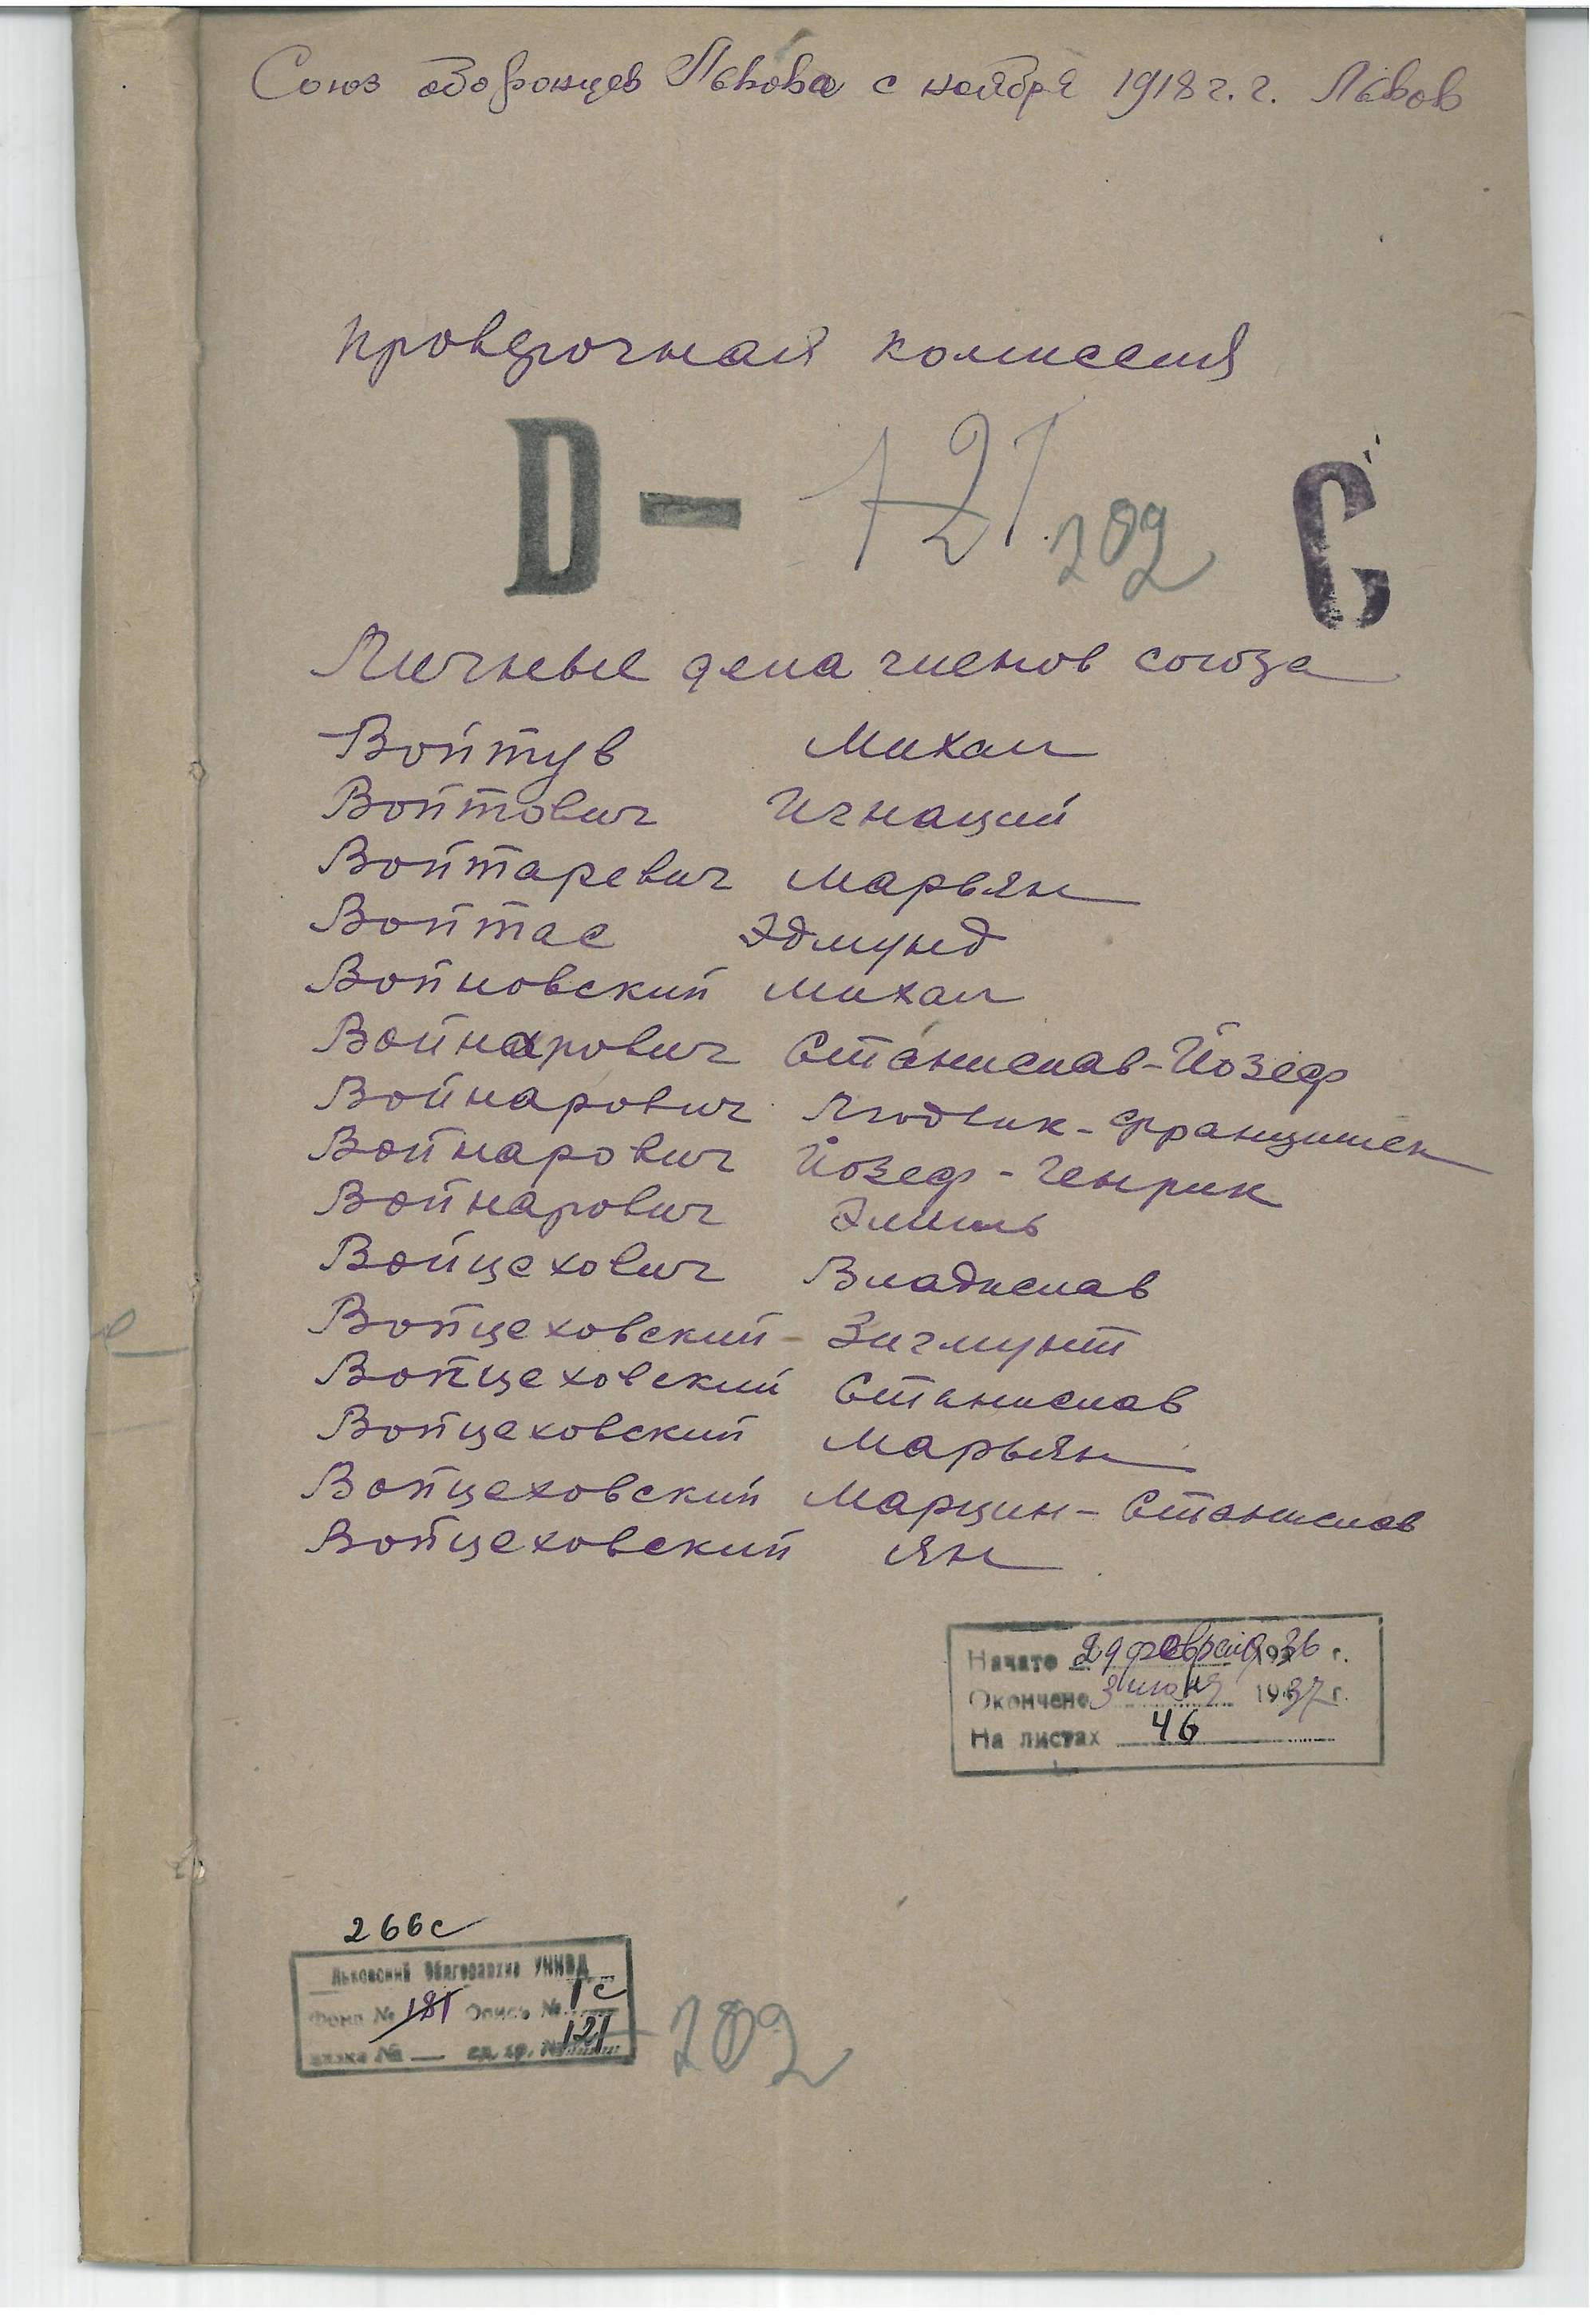 Союз оборонцев Львова с ноября 1918 г. г. Львов
проверочная комиссия
D — 121
202
С
Личные дела членов союза
Войтув Михал
Войтович Игнаций
Войтаревич Марьян
Войтас Эдмунд
Войновский Михал
Войнарович Станислав-Йозеф
Войнарович Людвик-Францишек
Войнарович Йозеф-Генрик
Войнарович Эмиль
Войцехович Владислав
Войцеховский Зигмунт
Войцеховский Станислав
Войцеховский Марьян
Войцеховский Марцин-Станислав
Войцеховский Ян
Начато 29 февраля 1936 г.
Окончено 3 июня 1937 г.
На листах 46
266с
Львовский Облгосархив УНКВД
Фонд № 181 Опись № 1с
вязка № — ед. хр. № 121
202